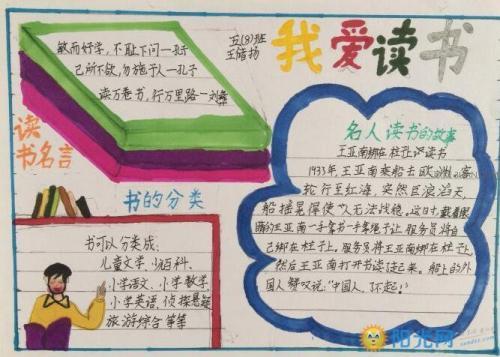 我爱读书
五(8)班
敏而好学，不耻下问—孔子
己所不欲，勿施于人—孔子
读万卷书，行万里路—刘彝
读书名言
名人读书的故事
王亚南绑在柱子上读书
1933年，王亚南乘船去欧
轮行至红海，突然巨浪滔天，
船摇晃得使人无法战稳。这时，戴着眼
镜的王亚南一手拿书一手拿绳子让服务员将自
己绑在柱子上。服务员将王亚南绑在柱子上
然后王亚南打开书读起来。船上的外
国人赞叹说："中国人，了不起！"
书的分类
书可以分类成：
儿童文学、少儿百科、
小学语文、小学数学、
小学英语、侦探悬疑
旅游综合等等
阳光网